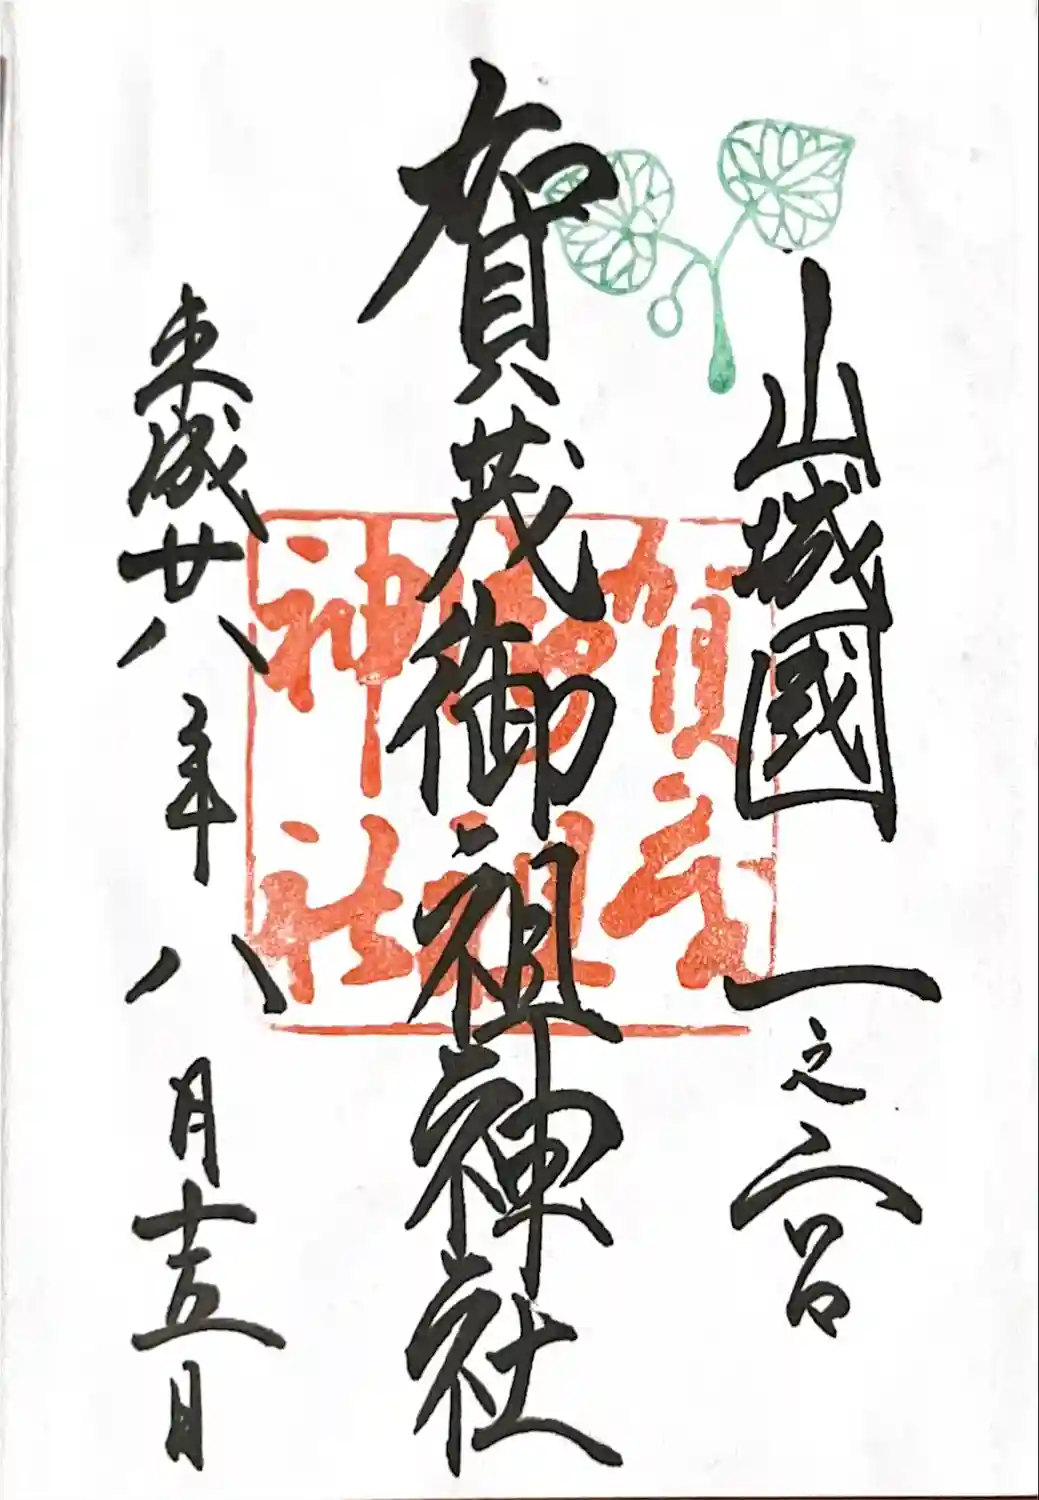 山城國一之宮
賀茂御祖神社
平成廿八年八月十五日
賀茂
御祖
神社